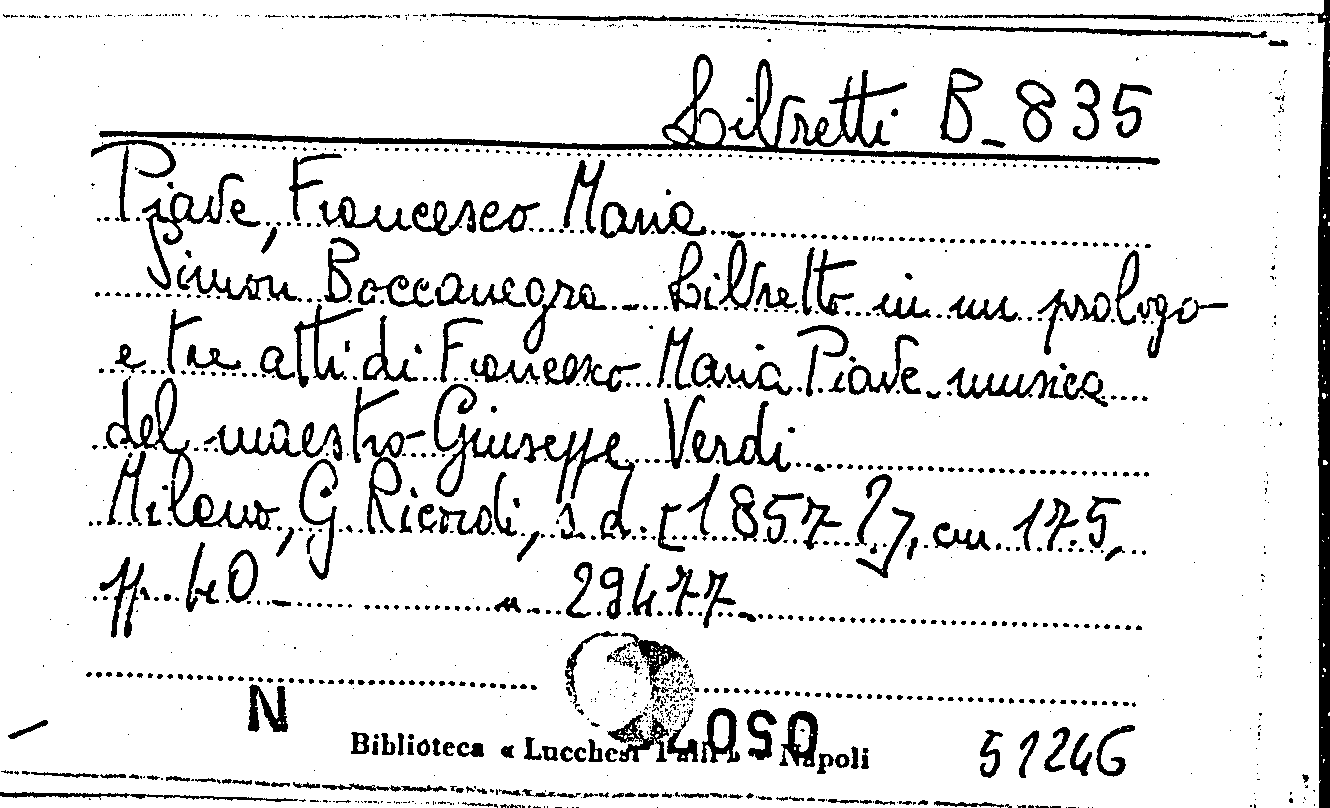 Libretti B_835
Piave, Francesco Maria_
Simon Boccanegra_ Libretto in un prologo
e tre atti di Francesco Maria Piave_musica
del maestro Giuseppe Verdi_
Milano, G. Ricordi, s.d. [1857?], cm 17.5,
pp. 40_ n. 29477_
N
Biblioteca « Lucchesi Palli » - Napoli
51246